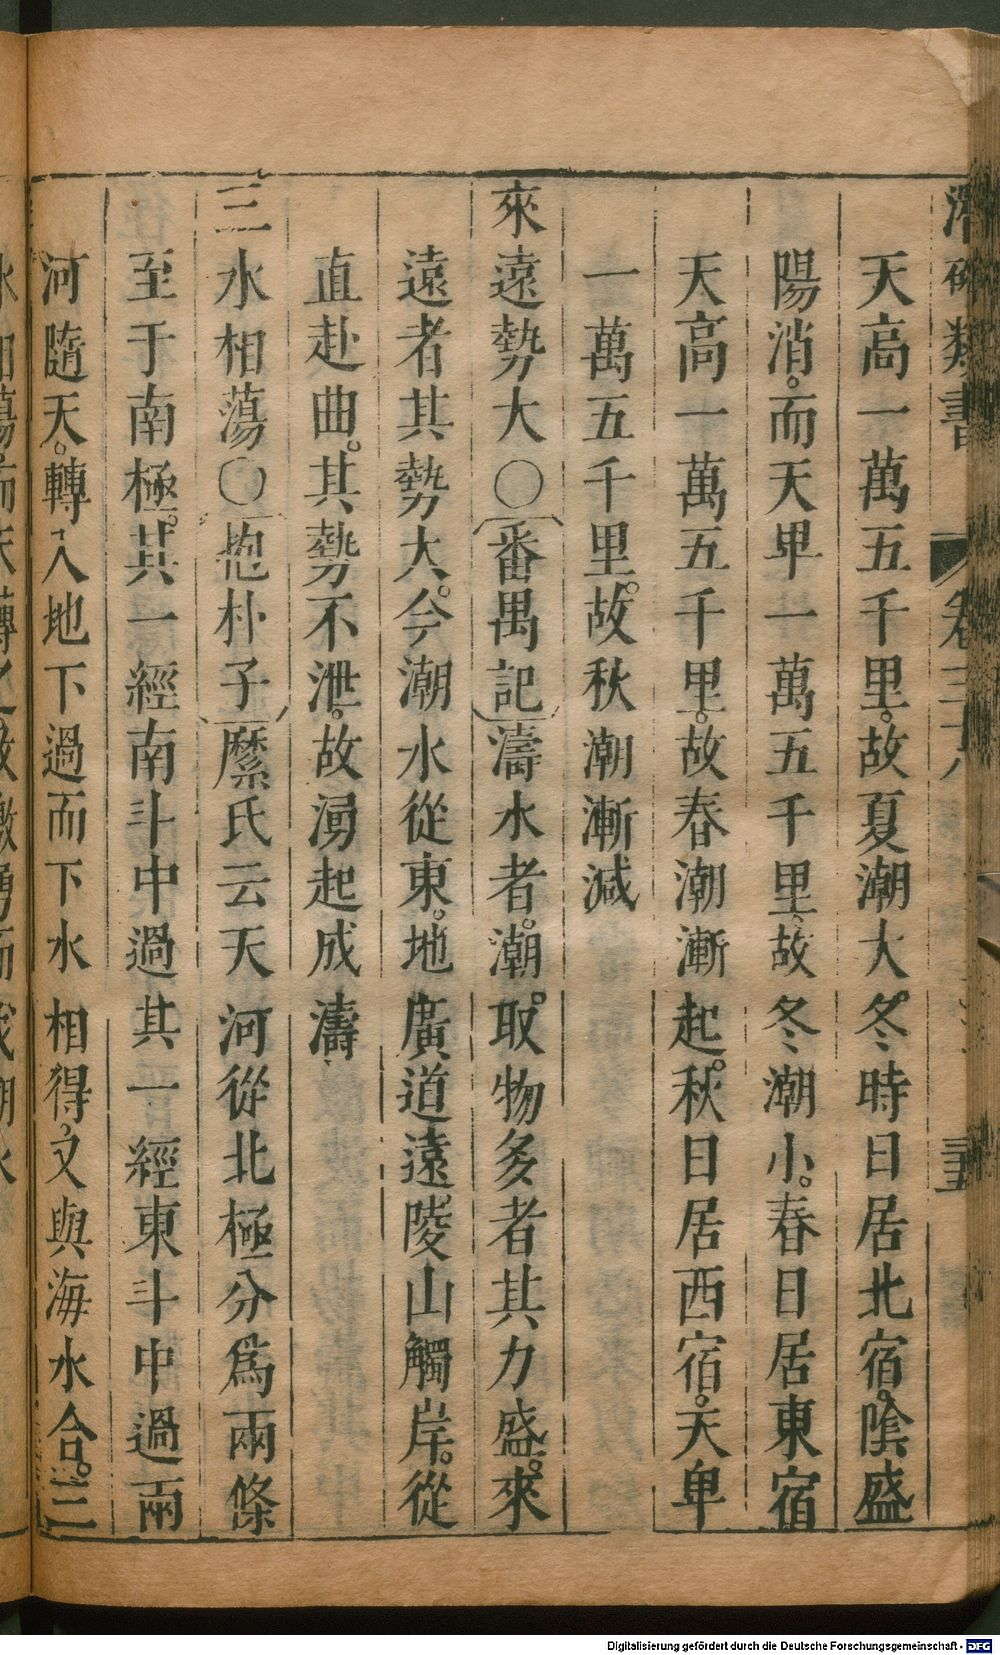 潛確類書 卷二十八 三五
天高一萬五千里。故夏潮大。冬時日居北宿。陰盛
陽消。而天卑一萬五千里。故冬潮小。春日居東宿
天高一萬五千里。故春潮漸起。秋日居西宿。天卑
一萬五千里。故秋潮漸減
來遠勢大○番禺記濤水者。潮。取物多者其力盛。來
遠者其勢大。今潮水從東。地廣道遠陵山觸岸。從
直赴曲。其勢不泄。故湧起成濤
三水相蕩○抱朴子縻氏云天河從北極分爲兩條
至于南極。其一經南斗中過其一經東斗中過兩
河隨天。轉入地下過而下水相得。又與海水合。三
水相蕩。而天轉之故激湧而成潮水
Digitalisierung gefördert durch die Deutsche Forschungsgemeinschaft - DFG